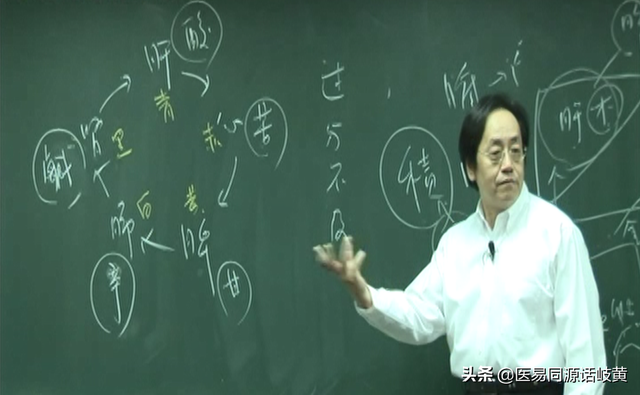 肝 酸
青
赤 心 苦
脾 黄 甘
肺 白 辛
肾 黑 鹹
过与不及
脾
積
肝木
头条 @医易同源话岐黄